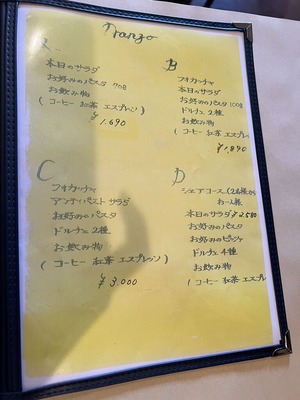 Pranzo
A
本日のサラダ
お好みのパスタ 70g
お飲み物
( コーヒー 紅茶 エスプレッソ )
¥1,690
B
フォカッチャ
本日のサラダ
お好みのパスタ 100g
ドルチェ 2種
お飲み物
( コーヒー 紅茶 エスプレッ
¥1,890
C
フォカッチャ
アンティパスト サラダ
お好みのパスタ
ドルチェ 2種
お飲み物
( コーヒー 紅茶 エスプレッソ )
¥3,000
D
シェアコース (2名様から
お一人様
本日のサラダ ¥2,580
お好みのパスタ
お好みのピッツァ
ドルチェ 4種
お飲み物
( コーヒー 紅茶 エスプレ